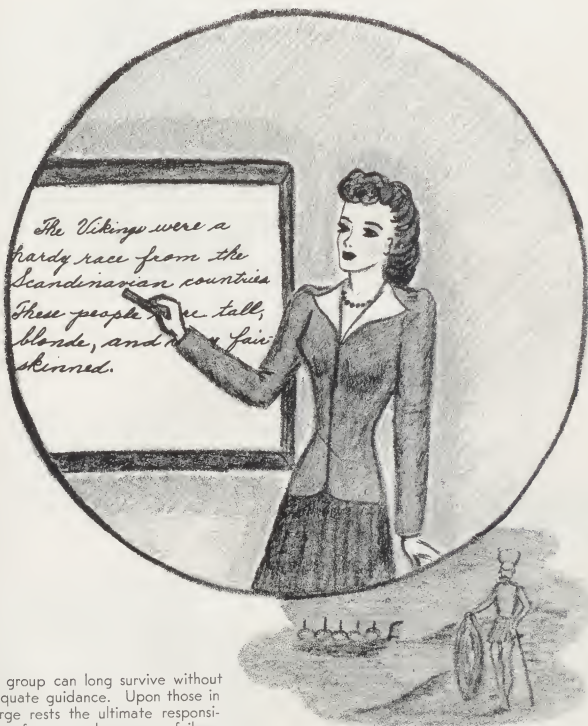 The Vikings were a
hardy race from the
Scandinavian countries
These people tall,
blonde, and fair
skinned.
group can long survive without
quate guidance. Upon those in
rge rests the ultimate responsi-